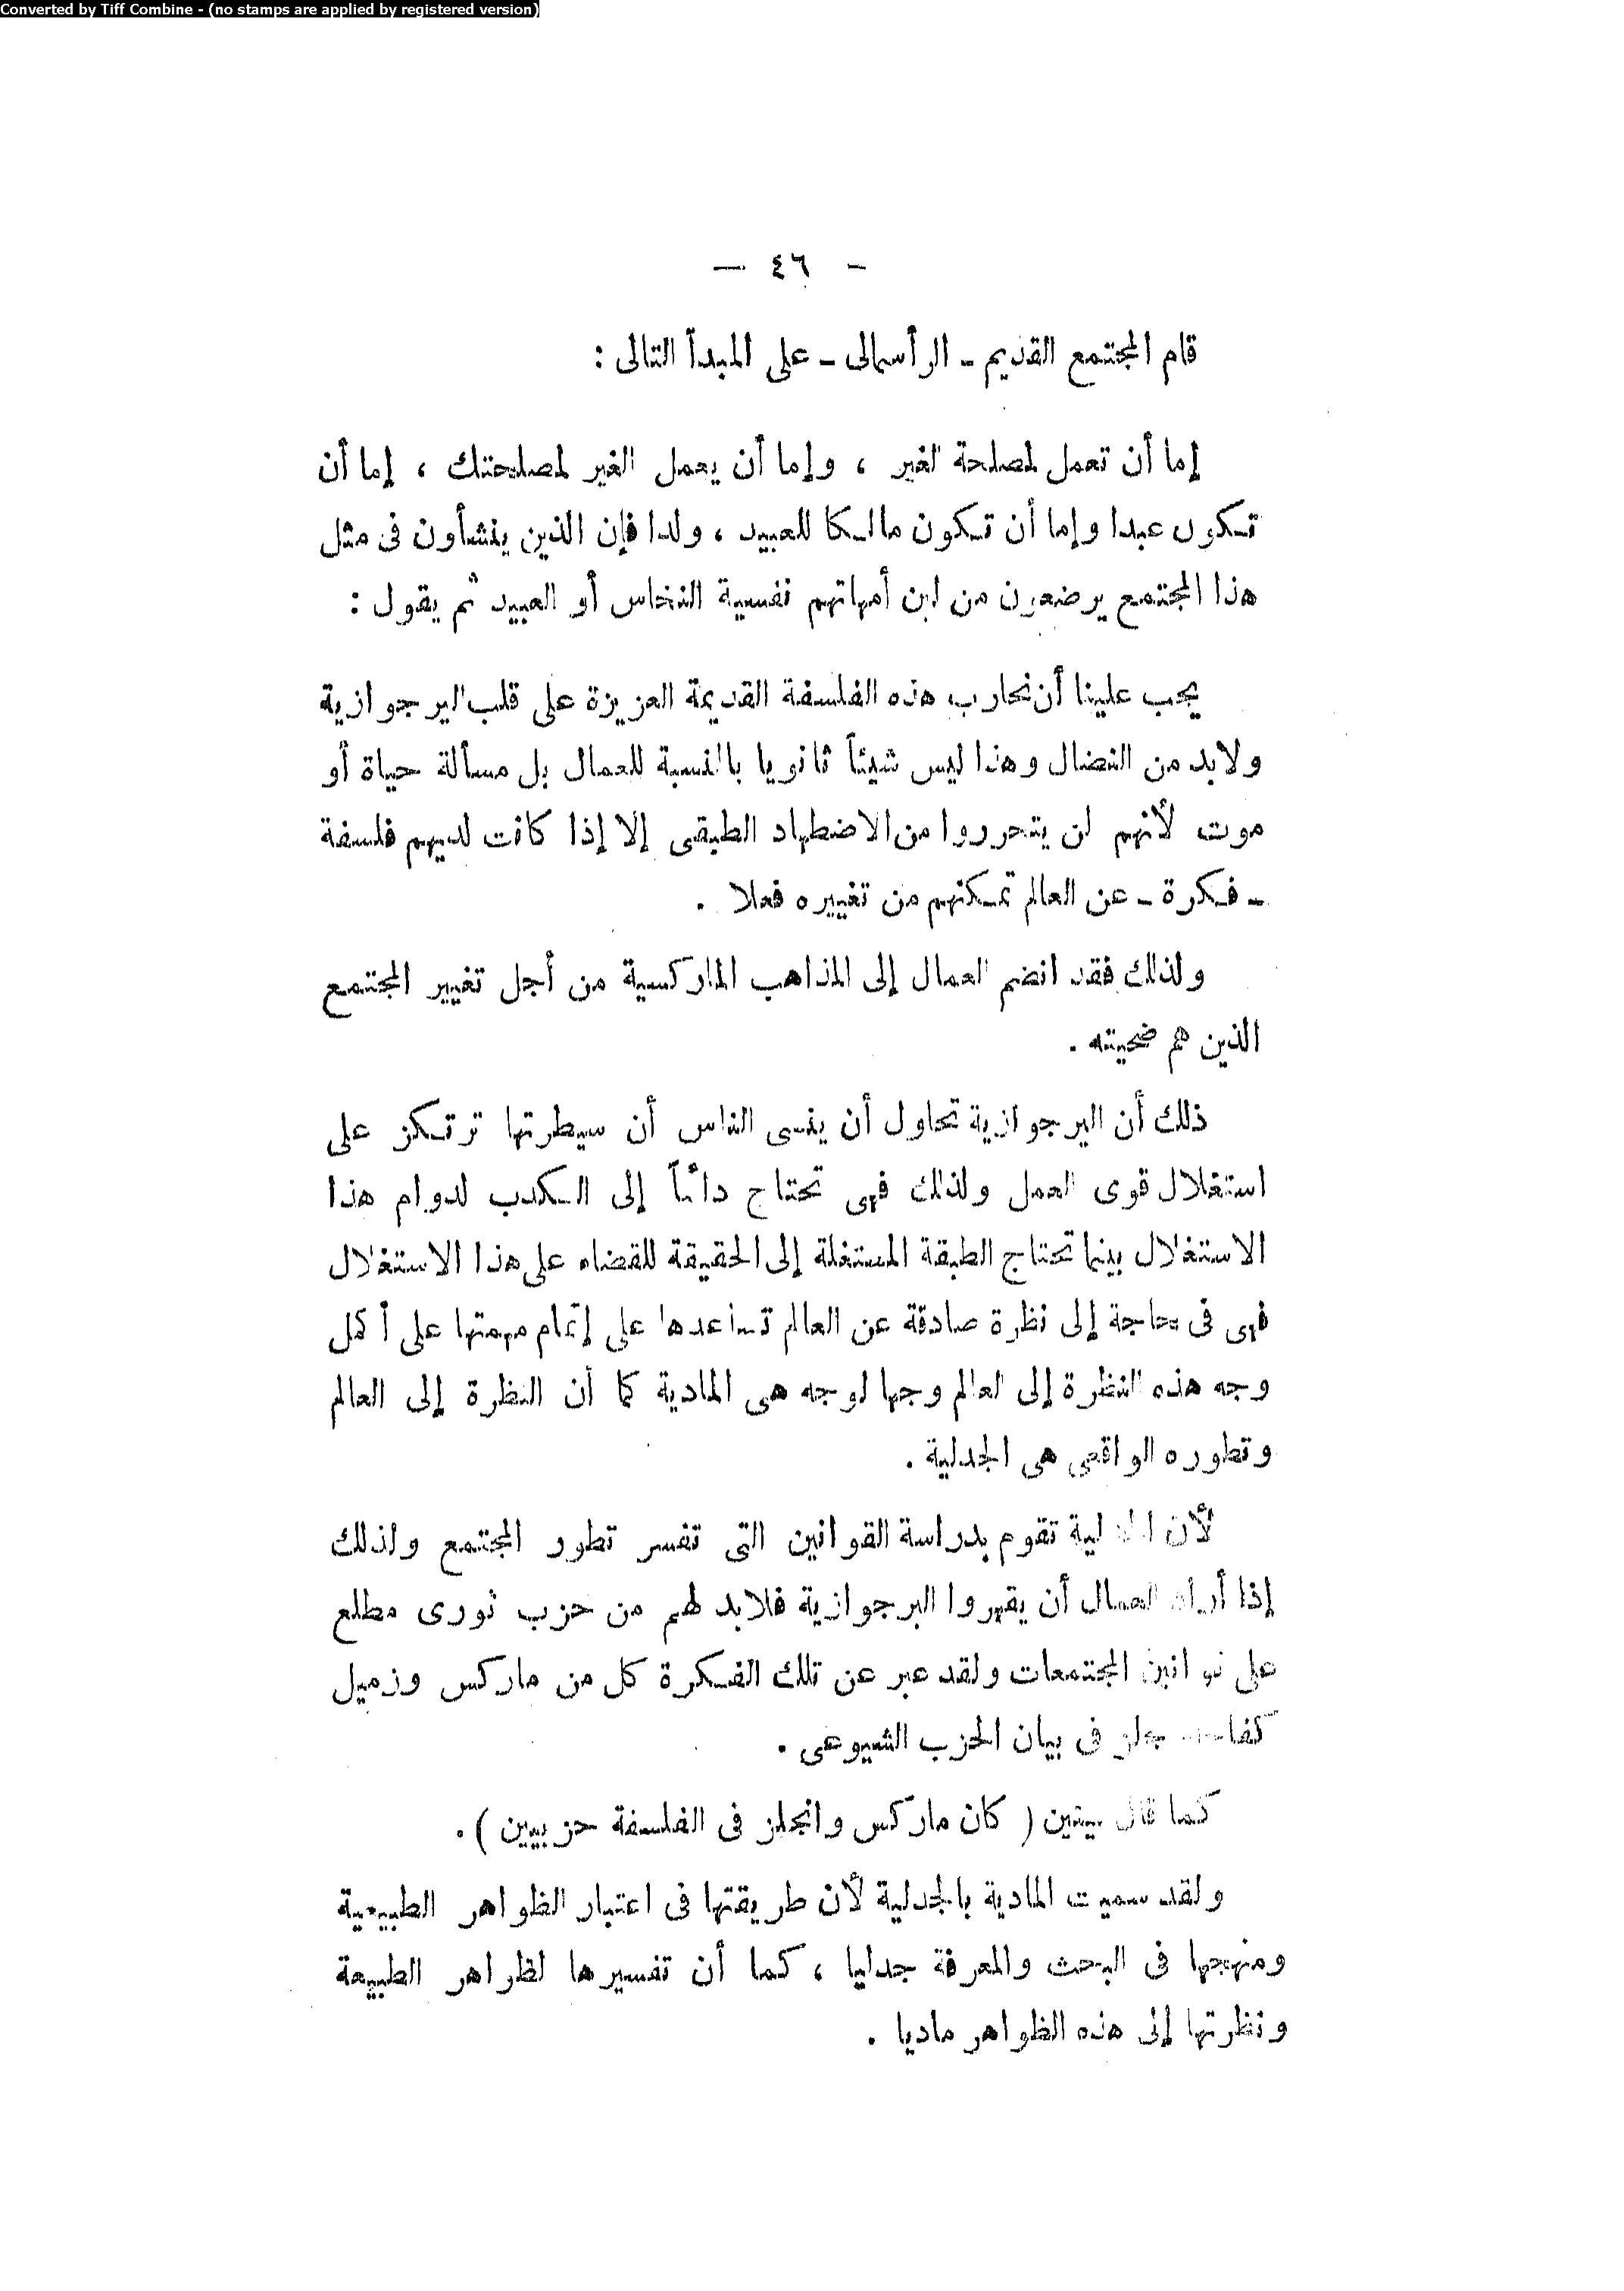 Converted by Tiff Combine - (no stamps are applied by registered version)
- ٤٦ -
قام المجتمع القديم - الرأسمالى - على المبدأ التالى :
إما أن تعمل لمصلحة الغير ، وإما أن يعمل الغير لمصلحتك ، إما أن
تكون عبدا وإما أن تكون مالكا للعبيد ، ولذا فإن الذين ينشأون فى مثل
هذا المجتمع يرضعون من لبن أمهاتهم نفسية النخاس أو العبيد ثم يقول :
يجب علينا أن نحارب هذه الفلسفة القديمة العزيزة على قلب البرجوازية
ولابد من النضال وهذا ليس شيئاً ثانويا بالنسبة للعمال بل مسألة حياة أو
موت لأنهم لن يتحرروا من الاضطهاد الطبقى إلا إذا كانت لديهم فلسفة
- فكرة - عن العالم تمكنهم من تغييره فعلا .
ولذلك فقد انضم العمال إلى المذاهب الماركسية من أجل تغيير المجتمع
الذين هم ضحيته .
ذلك أن البرجوازية تحاول أن ينسى الناس أن سيطرتها ترتكز على
استغلال قوى العمل ولذلك فهى تحتاج دائماً إلى الكذب لدوام هذا
الاستغلال بينما تحتاج الطبقة المستغلة إلى الحقيقة للقضاء على هذا الاستغلال
فهى فى حاجة إلى نظرة صادقة عن العالم تساعدها على إتمام مهمتها على أكمل
وجه هذه النظرة إلى العالم وجها لوجه هى المادية كما أن النظرة إلى العالم
وتطوره الواقعى هى الجدلية .
لأن تقوم بدراسة القوانين التى تفسر تطور المجتمع ولذلك
إذا أراد العمال أن يقهروا البرجوازية فلابد لهم من حزب ثورى مطلع
على قوانين المجتمعات ولقد عبر عن تلك الفكرة كل من ماركس وزميل
فى بيان الحزب الشيوعى .
كما قال ( كان ماركس وانجلز فى الفلسفة حزبيين ) .
ولقد سميت المادية بالجدلية لأن طريقتها فى اعتبار الظواهر الطبيعية
ومنهجها فى البحث والمعرفة جدليا ، كما أن تفسيرها لظواهر الطبيعة
ونظرتها إلى هذه الظواهر ماديا .